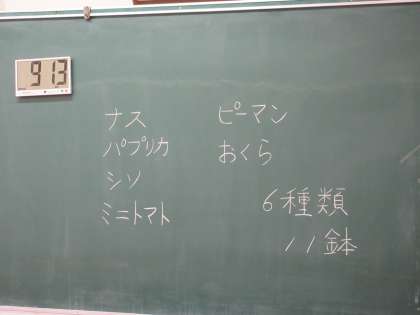 9 13
ナス
パプリカ
シソ
ミニトマト
ピーマン
おくら
6種類
11鉢